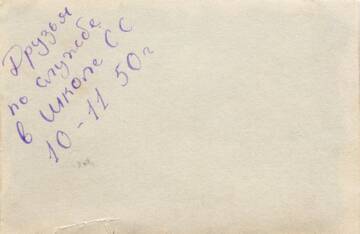 Друзья
по службе
в школе СС
10-11 50г